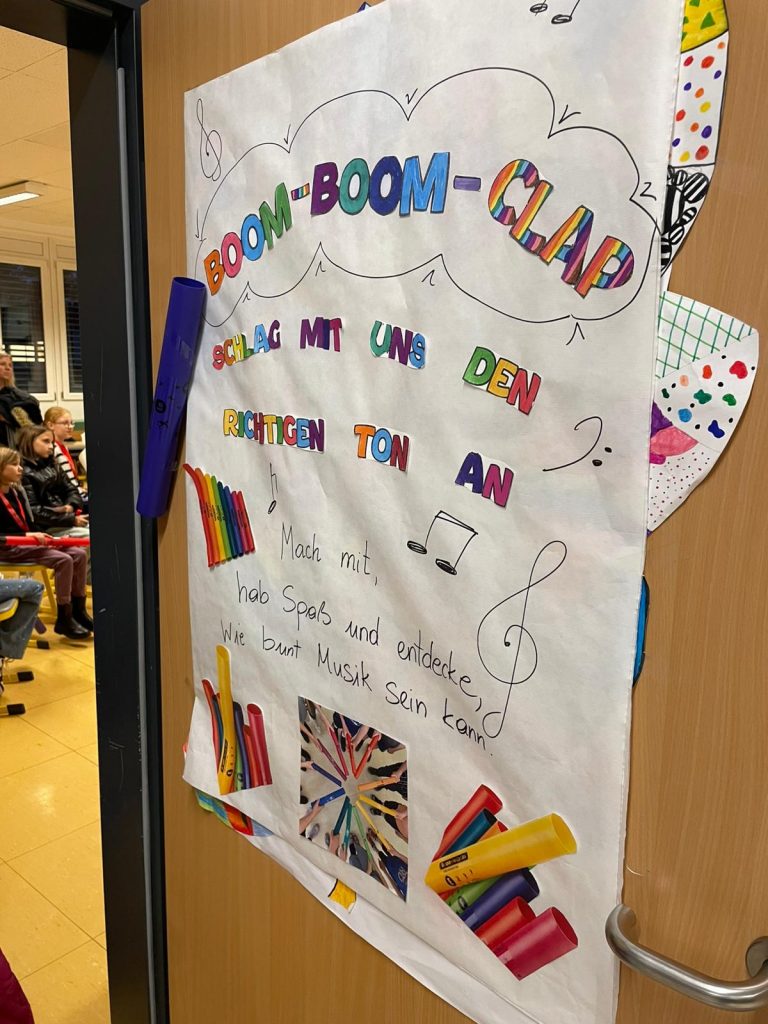 BOOM-BOOM-CLAP
SCHLAG MIT UNS DEN
RICHTIGEN TON AN
Mach mit,
hab Spaß und entdecke,
Wie bunt Musik sein kann.